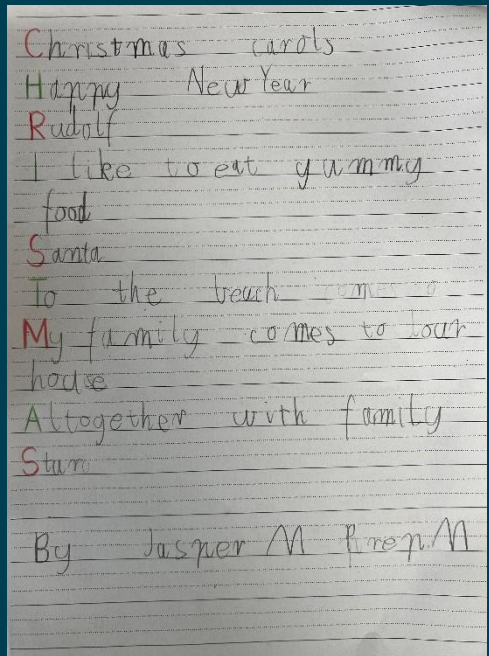 Christmas carols
Happy New Year
Rudolf
I like to eat yummy
food
Santa
To the beach
My family comes to our
house
Altogether with family
Star
By Jasper M Prep.M